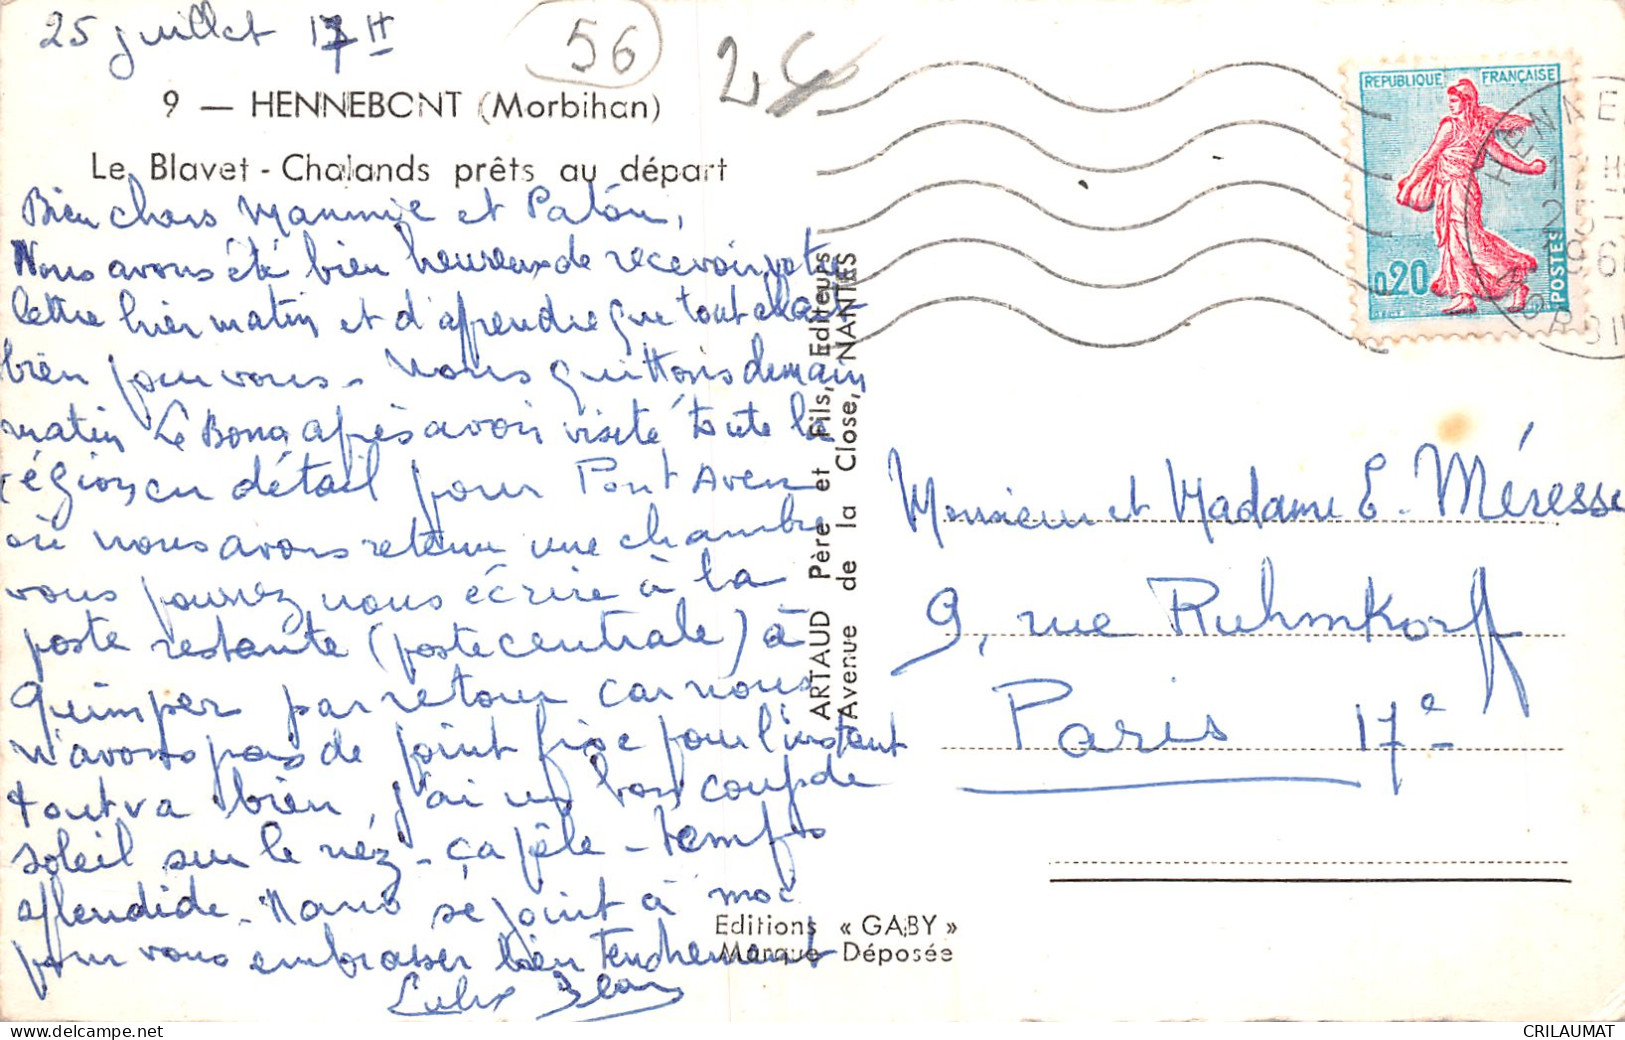 25 juillet 17H
56
9 — HENNEBONT (Morbihan)
Le Blavet - Chalands prêts au départ
Bien chers Mammie et Patou,
Nous avons été bien heureux de recevoir votre
lettre hier matin et d'apprendre que tout allait
bien pour vous - Nous quittons demain
matin Le Bono après avoir visité toute la
région en détail pour Pont Aven
où nous avons retenu une chambre
vous pourrez nous écrire à la
poste restante (poste centrale) à
Quimper par retour car nous
n'avons pas de point fixe pour l'instant
tout va bien, j'ai un bon coup de
soleil sur le néz - ça pèle - temps
splendide - Nano se joint à moi
pour vous embrasser bien tendrement
Jean
ARTAUD Père et Fils, Editeurs
Avenue de la Close, NANTES
Editions « GABY »
Marque Déposée
REPUBLIQUE FRANÇAISE
0,20
POSTES
Monsieur et Madame E. Méresse
9, rue Ruhmkorff
Paris 17e
CRILAUMAT